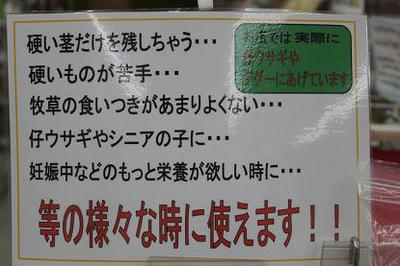 硬い茎だけを残しちゃう・・・
硬いものが苦手・・・
牧草の食いつきがあまりよくない・・・
仔ウサギやシニアの子に・・・
妊娠中などのもっと栄養が欲しい時に・・・
等の様々な時に使えます！！
当店では実際に
仔ウサギや
デグーにあげています